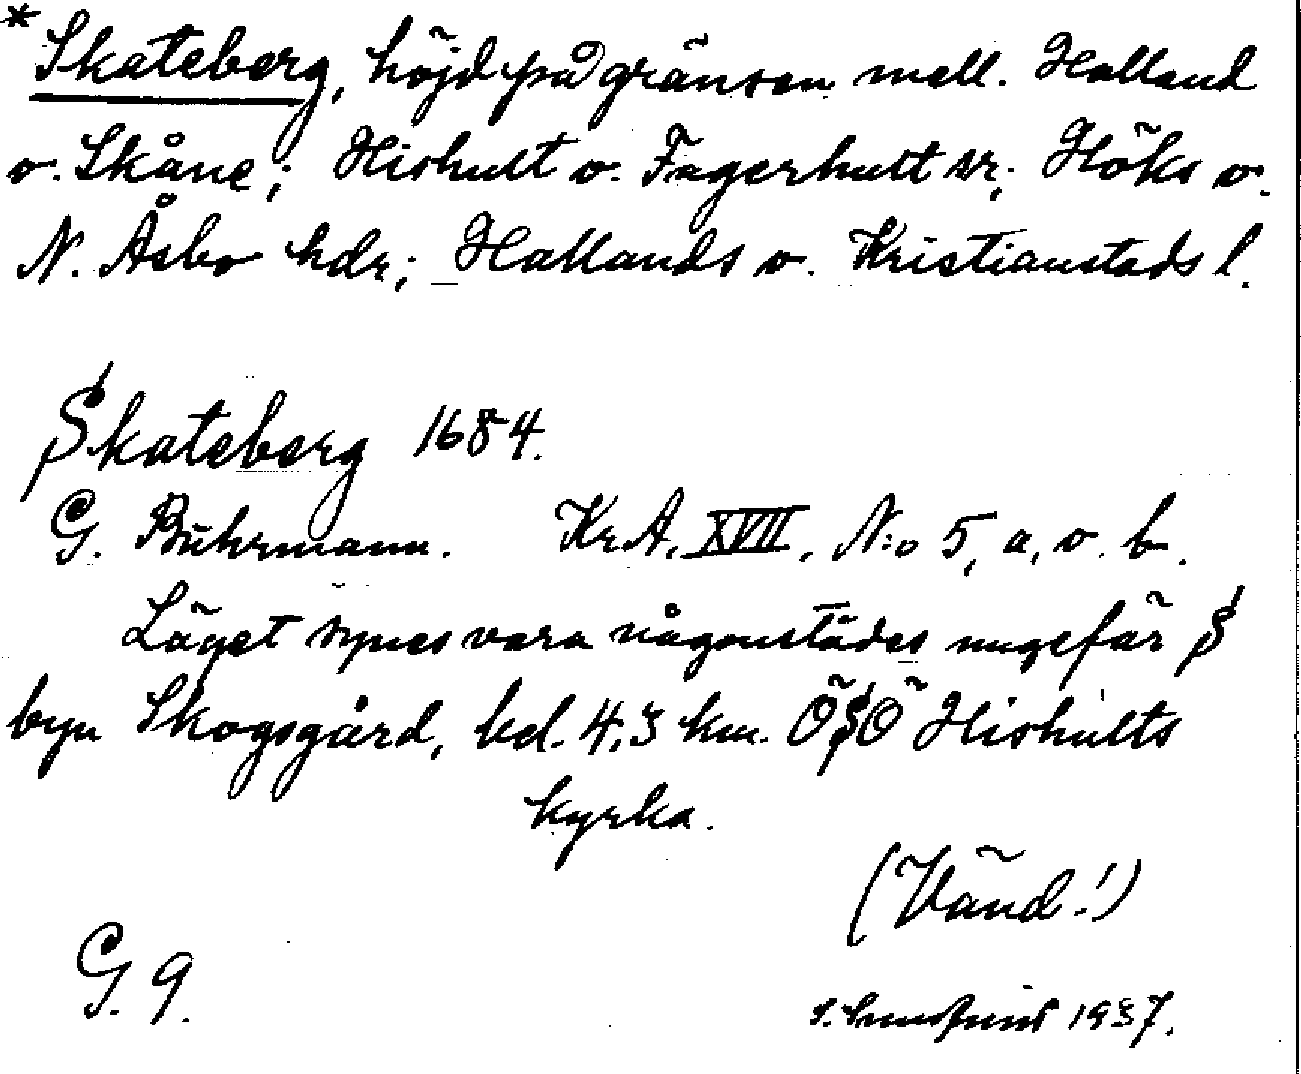 *Skateberg, höjd på gränsen mell. Halland
o. Skåne; Hishult o. Fagerhult snr; Höks o.
N. Åsbo hdr; Hallands o. Kristianstads l.
Skateberg 1684.
G. Buhrmann. Kr.A. XVII, N:o 5, a, o. b.
Läget synes vara någonstädes ungefär S
byn Skogsgård, bel. 4,3 km. ÖSÖ Hishults
kyrka.
(Vänd!)
G. 9.
1937.